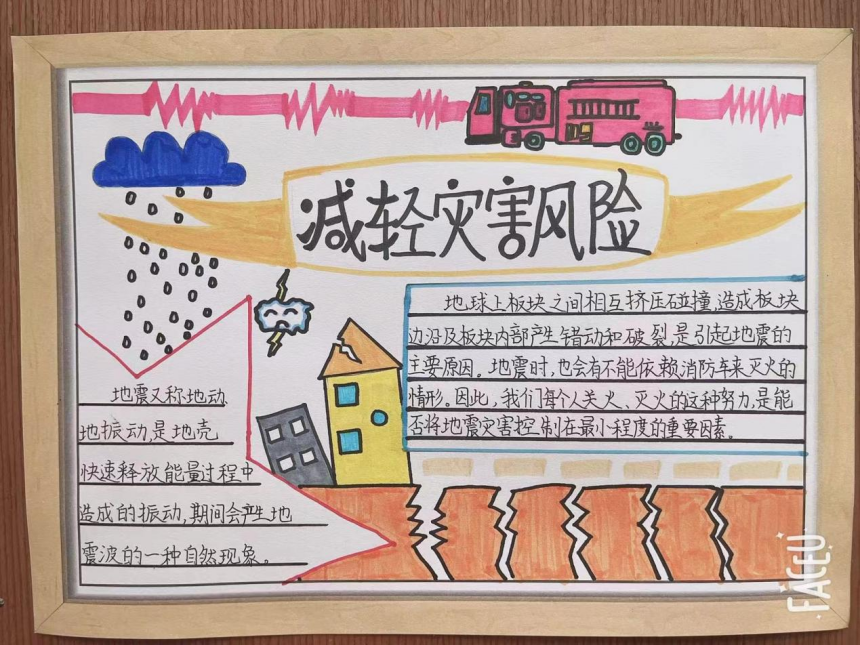 减轻灾害风险
地球上板块之间相互挤压碰撞,造成板块
边沿及板块内部产生错动和破裂,是引起地震的
主要原因。地震时,也会有不能依赖消防车来灭火的
情形。因此,我们每个人关火、灭火的这种努力,是能
否将地震灾害控制在最小程度的重要因素。
地震又称地动
地振动,是地壳
快速释放能量过程中
造成的振动,期间会产生地
震波的一种自然现象。
FACEU